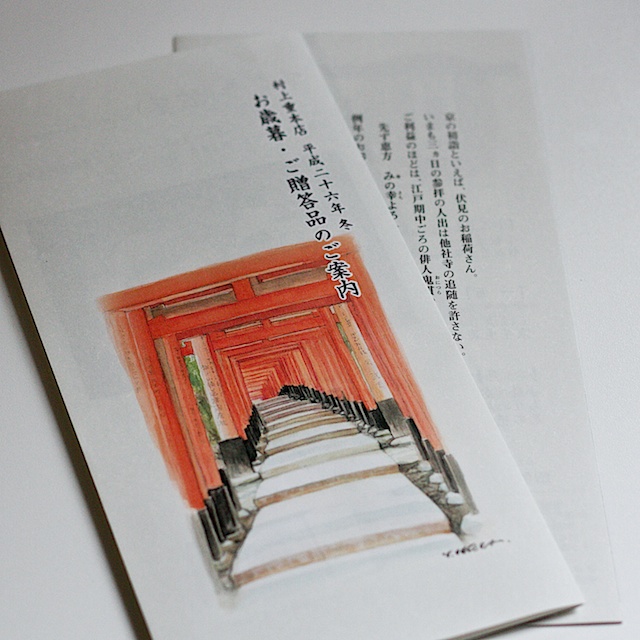 村上重本店 平成二十六年 冬
お歳暮・ご贈答品のご案内
京の初詣といえば、伏見のお稲荷さん。
いまも三ヵ日の参拝の人出は他社寺の追随を許さない。
ご利益のほどは、江戸期中ごろの俳人鬼貫
おにつら
先于恵方 みの幸よろ
例年のお